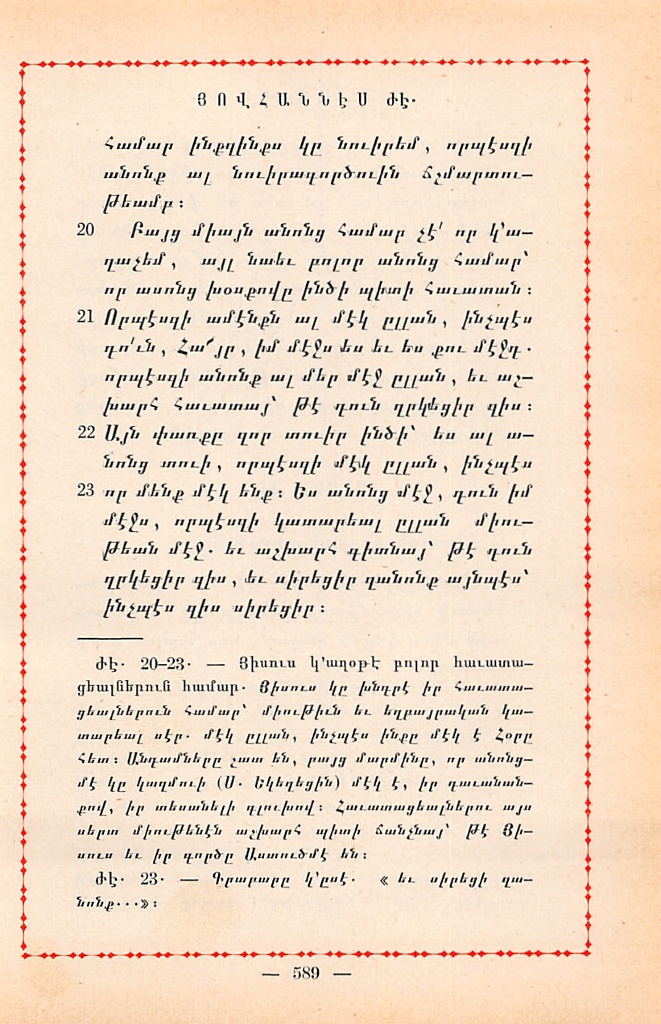 ՅՈՎՀԱՆՆԷՍ ԺԷ.
համար ինքզինքս կը նուիրեմ, որպէսզի
անոնք ալ նուիրագործուին ճշմարտու-
թեամբ։
20 Բայց միայն անոնց համար չէ՛ որ կ'ա-
ղաչեմ, այլ նաեւ բոլոր անոնց համար՝
որ ասոնց խօսքովը ինծի պիտի հաւատան։
21 Որպէսզի ամէնքն ալ մէկ ըլլան, ինչպէս
դո՛ւն, Հա՛յր, իմ մէջս ես եւ ես քու մէջդ.
որպէսզի անոնք ալ մեր մէջ ըլլան, եւ աշ-
խարհ հաւատայ՝ թէ դուն ղրկեցիր զիս։
22 Այն փառքը զոր տուիր ինծի՝ ես ալ ա-
նոնց տուի, որպէսզի մէկ ըլլան, ինչպէս
23 որ մենք մէկ ենք։ Ես անոնց մէջ, դուն իմ
մէջս, որպէսզի կատարեալ ըլլան միու-
թեան մէջ. եւ աշխարհ գիտնայ՝ թէ դուն
ղրկեցիր զիս, եւ սիրեցիր զանոնք այնպէս՝
ինչպէս զիս սիրեցիր։
ԺԷ. 20–23. — Յիսուս կ'աղօթէ բոլոր հաւատա-
ցեալներուն համար. Յիսուս կը խնդրէ իր հաւատա-
ցեալներուն համար՝ միութիւն եւ եղբայրական կա-
տարեալ սէր. մէկ ըլլան, ինչպէս ինքը մէկ է Հօրը
հետ։ Անդամները շատ են, բայց մարմինը, որ անոնց-
մէ կը կազմուի (Ս. Եկեղեցին) մէկ է, իր դաւանան-
քով, իր տեսանելի գլուխով։ Հաւատացեալներու այս
սերտ միութենէն աշխարհ պիտի ճանչնայ՝ թէ Յի-
սուս եւ իր գործը Աստուծմէ են։
ԺԷ. 23. — Գրաբարը կ'ըսէ. « եւ սիրեցի զա-
նոնք...»։
— 589 —